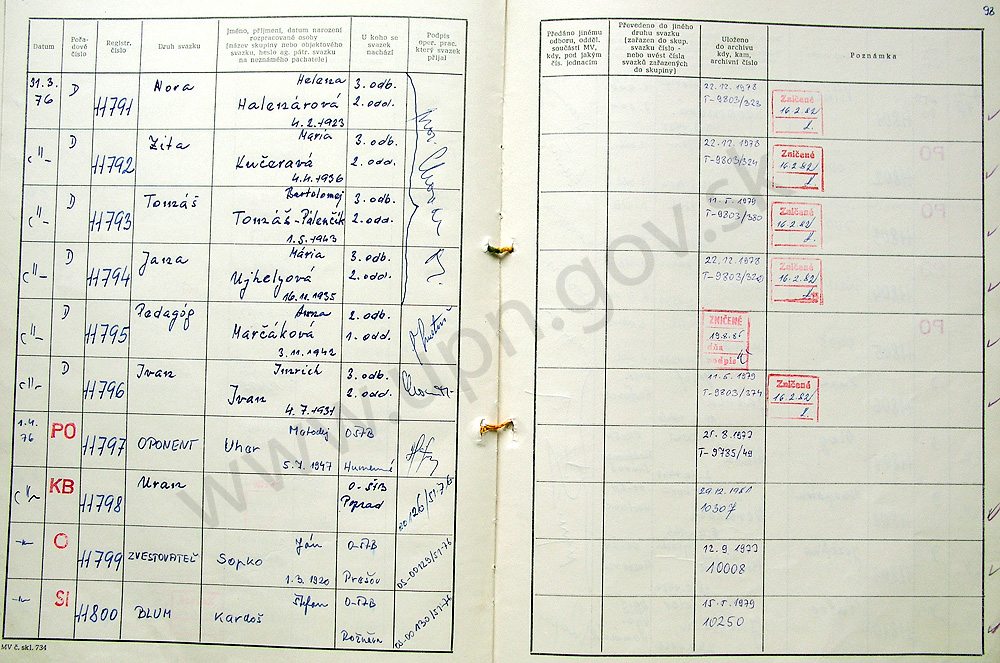 98
Datum
Pořadové číslo
Registr. číslo
Druh svazku
Jméno, příjmení, datum narození
rozpracované osoby
(název skupiny nebo objektového
svazku, heslo ag. pátr. svazku
na neznámého pachatele)
U koho se
svazek
nachází
Podpis
oper. prac.
který svazek
přijal
Předáno jinému
odboru, odděl.
součásti MV,
kdy, pod jakým
čís. jednacím
Převedeno do jiného
druhu svazku
(zařazen do skup.
svazku číslo -
nebo uvést čísla
svazků zařazených
do skupiny)
Uloženo
do archivu
kdy, kam,
archivní číslo
Poznámka
31.3. 76 D 11791 Nora Helena 3. odb. 22.12.1978
Halenárová 2. odd. T-9803/323 Zničené 16.2.82
4.2.1923
-"- D 11792 Zita Maria 3. odb. 22.12.1978
Kučeravá 2. odd. T-9803/324 Zničené 16.2.82
4.4.1936
-"- D 11793 Tomáš Bartolomej 3. odb. 11.5.1979
Tomáš-Palenčík 2. odd. T-9803/380 Zničené 16.2.82
1.5.1943
-"- D 11794 Jana Mária 3. odb. 22.12.1978
Ujhelyová 2. odd. Zničené 16.2.82
16.11.1935
-"- D 11795 Pedagóg Anna 2. odb. ZNIČENÉ
Marčáková 1. odd. 19.8.85
3.11.1942 dňa
podpis
-"- D 11796 Ivan Imrich 3. odb. 11.5.1979
Ivan 2. odd. T-9803/374 Zničené 16.2.82
4.7.1931
1.4. 76 PO 11797 OPONENT Uhar OŠTB 25.8.1977
5.7.1947 Humenné T-9785/49
-"- KB 11798 Uran O-ŠTB 29.12.1981
Poprad 00126/51-76 10307
-"- O 11799 ZVESTOVATEĽ Sopko Ján O-ŠTB 12.9.1977
1.3.1920 Prešov OS-00129/51-76 10008
-"- SI 11800 BLUM Kardoš Štefan O-ŠTB 15.5.1979
Rožňava OS-00130/51-76 10250
MV č. skl. 734
www.upn.gov.sk